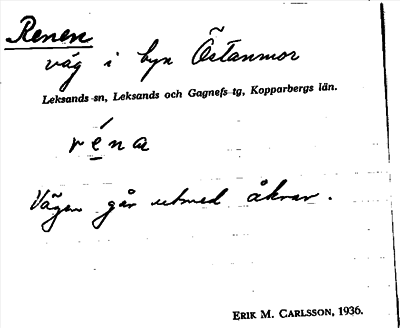 Renen
väg i byn Östanmor
Leksands sn, Leksands och Gagnefs tg, Kopparbergs län.
réna
Vägen går utmed åkrar.
ERIK M. CARLSSON, 1936.